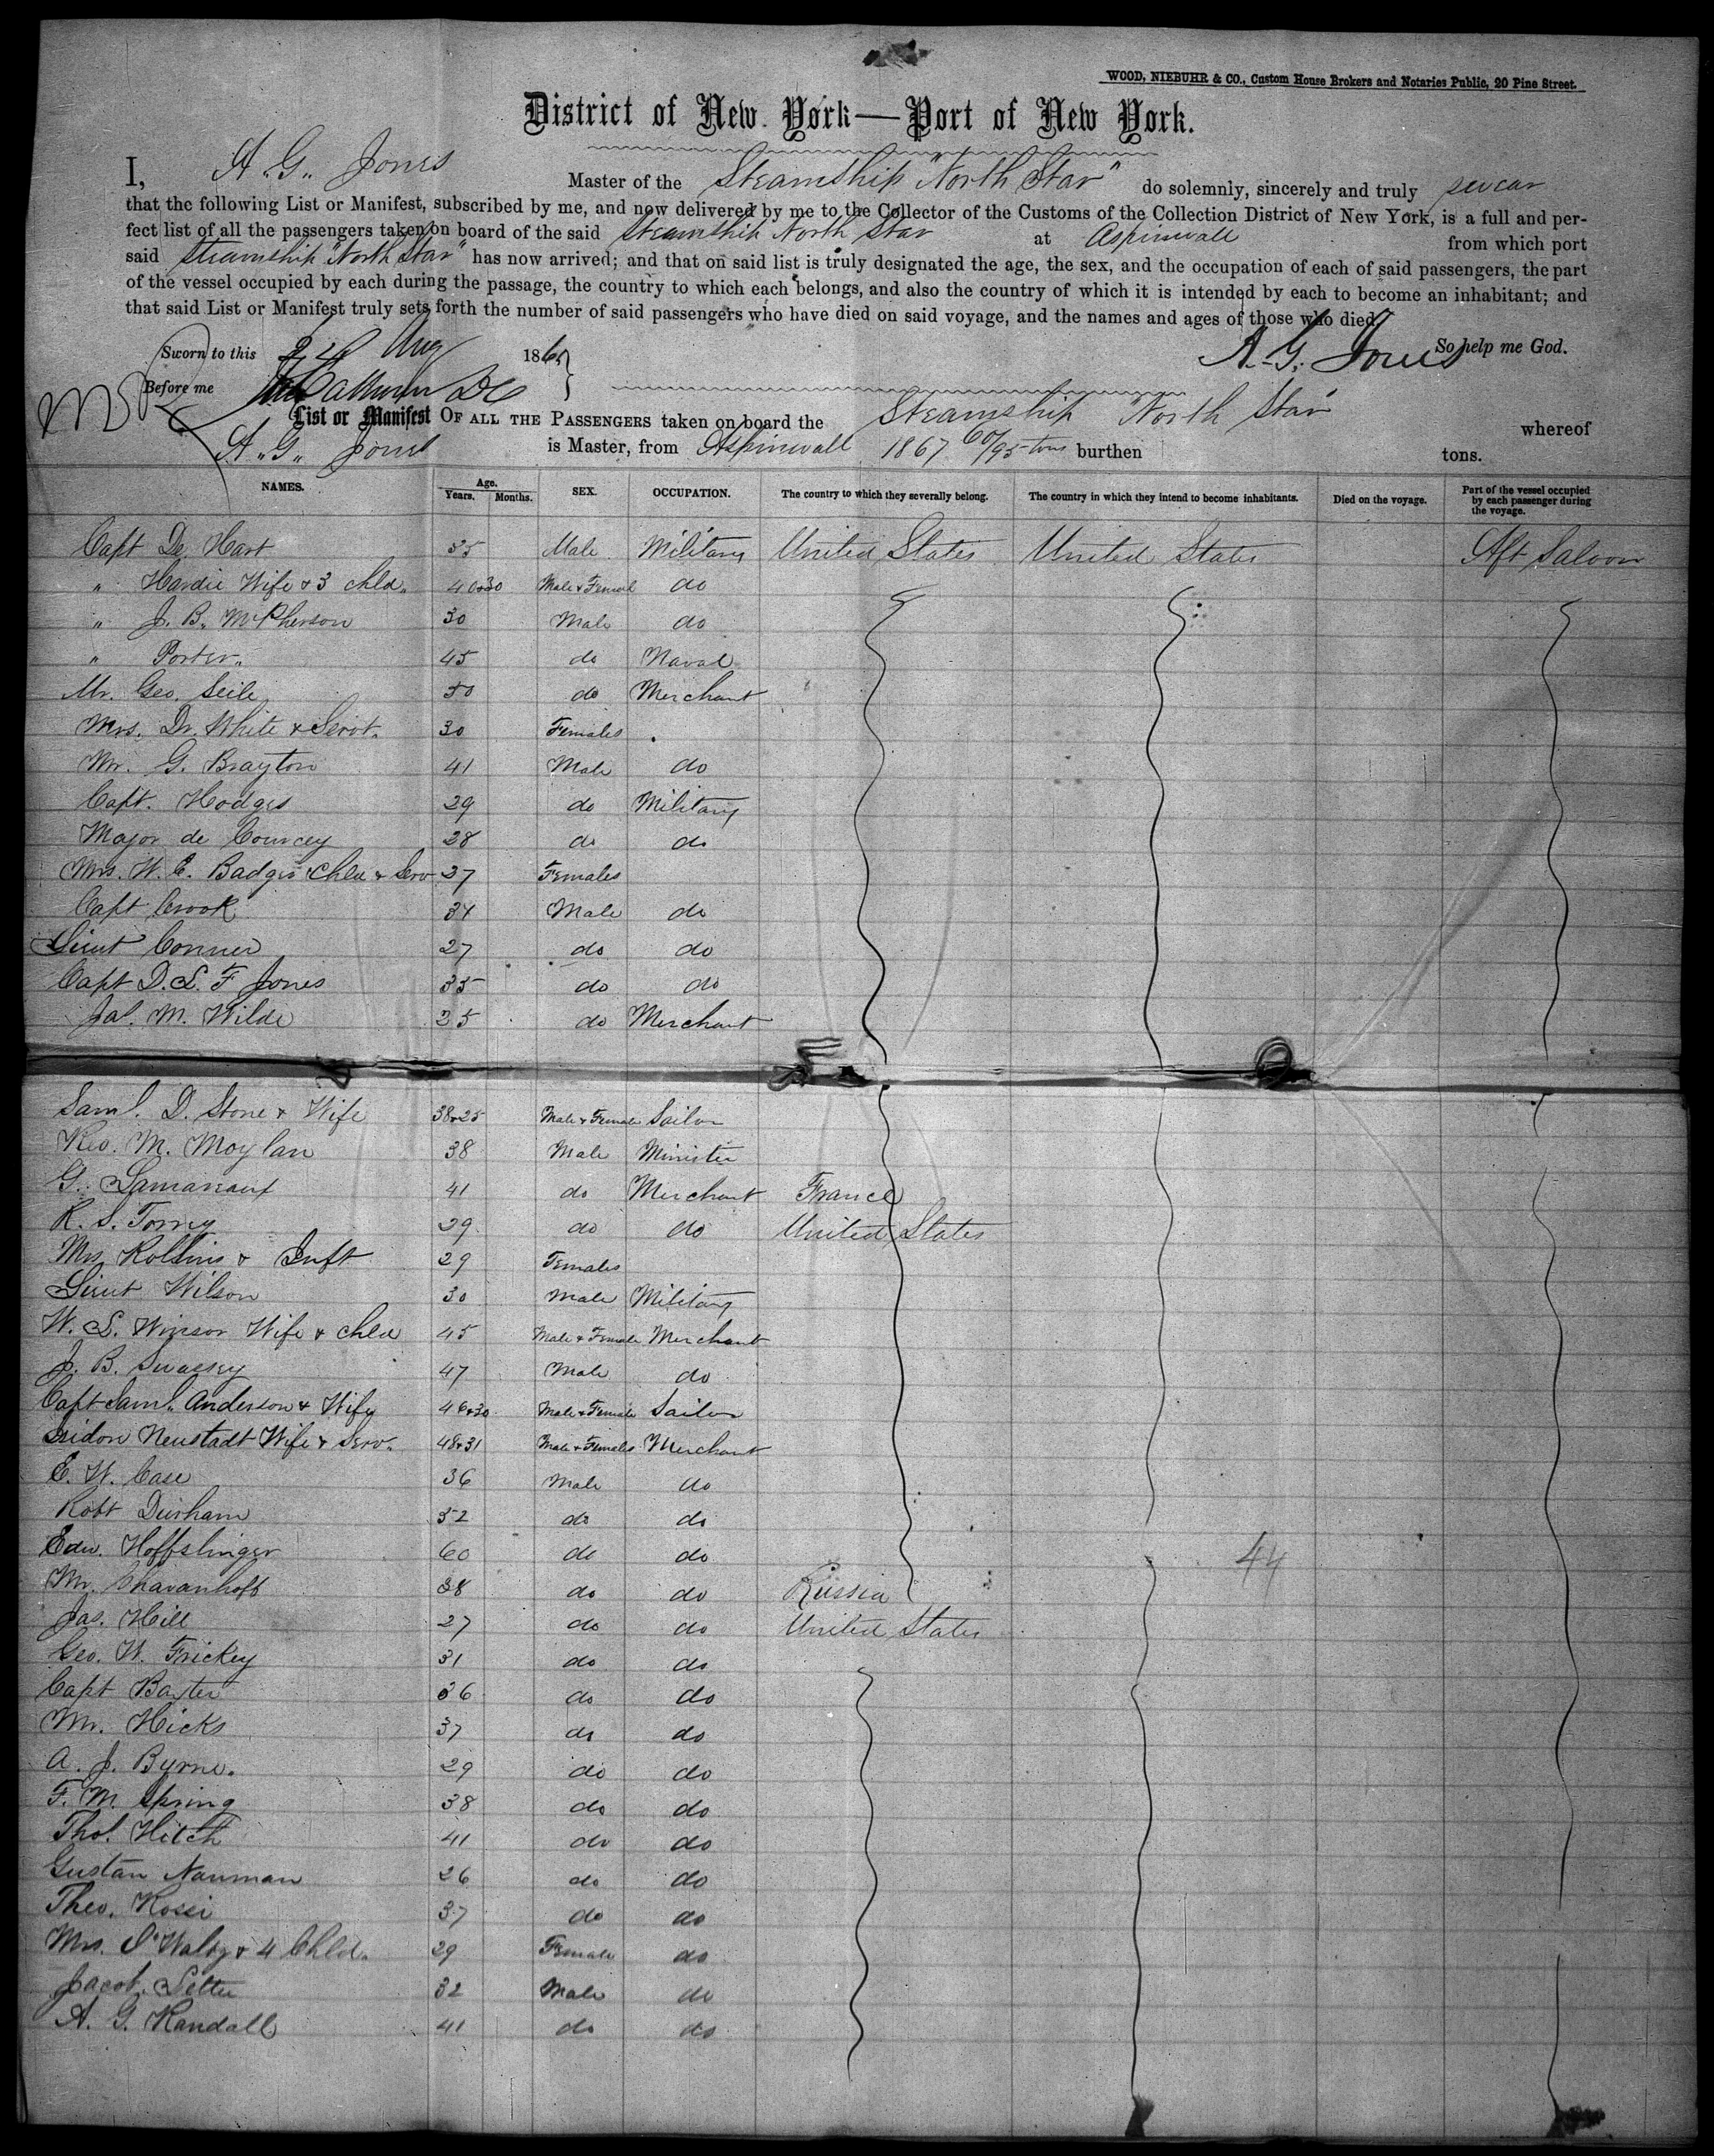 WOOD, NIEBUHR & CO., Custom House Brokers and Notaries Public, 20 Pine Street.
District of New York—Port of New York.
I, A. G. Jones Master of the Steamship "North Star" do solemnly, sincerely and truly swear
that the following List or Manifest, subscribed by me, and now delivered by me to the Collector of the Customs of the Collection District of New York, is a full and per-
fect list of all the passengers taken on board of the said Steamship North Star at Aspinwall from which port
said Steamship "North Star" has now arrived; and that on said list is truly designated the age, the sex, and the occupation of each of said passengers, the part
of the vessel occupied by each during the passage, the country to which each belongs, and also the country of which it is intended by each to become an inhabitant; and
that said List or Manifest truly sets forth the number of said passengers who have died on said voyage, and the names and ages of those who died.
Sworn to this 24 Aug 1865 A. G. Jones So help me God.
Before me
List or Manifest OF ALL THE PASSENGERS taken on board the Steamship "North Star" whereof
A. G. Jones is Master, from Aspinwall 1867 60/95 tons burthen tons.
NAMES. Age. Years. Months. SEX. OCCUPATION. The country to which they severally belong. The country in which they intend to become inhabitants. Died on the voyage. Part of the vessel occupied by each passenger during the voyage.
Capt De Hart 35 Male Military United States United States Aft Saloon
" Hardie Wife & 3 Chld. 40&30 Male & Femal do
" J. B. McPherson 30 Male do
" Porter. 45 do Naval
Mr. Geo. Seile 50 do Merchant
Mrs. Dr. White & Servt. 30 Females
Mr. G. Brayton 41 Male do
Capt. Hodges 29 do Military
Major de Courcey 28 do do
Mrs. W. E. Badger Chld & Serv 27 Females
Capt Crook 34 Male do
Lieut Conner 27 do do
Capt D. L. F Jones 35 do do
Jas. M. Wilde 25 do Merchant
Saml. D. Stone & Wife 38&25 Male & Female Sailor
Rev. M. Moylan 38 Male Minister
G. 41 do Merchant France
R. S. Torrey 29 do do United States
Mrs Rollins & Inft 29 Females
Lieut Wilson 30 Male Military
W. L. Winsor Wife & Chld 45 Male & Female Merchant
J. B. Swassey 47 Male do
Capt Saml. Anderson & Wife 46&30 Male & Female Sailor
Neustadt Wife & Serv. 48&31 Male & Females Merchant
E. W. Case 36 Male do
Robt Durham 52 do do
Edw. Hoffslinger 60 do do 44
Mr. Chavanhoff 28 do do Russia
Jas. Hill 27 do do United States
Geo. W. Frickey 31 do do
Capt Baxter 36 do do
Mr. Hicks 37 do do
A. J. Byrne. 29 do do
F. M. Spring 38 do do
Thos. Hitch 41 do do
Gustan Nauman 26 do do
Theo. Rossi 37 do do
Mrs. & 4 Chld. 29 Female do
Jacob 32 Male do
A. G. Randall 41 do do